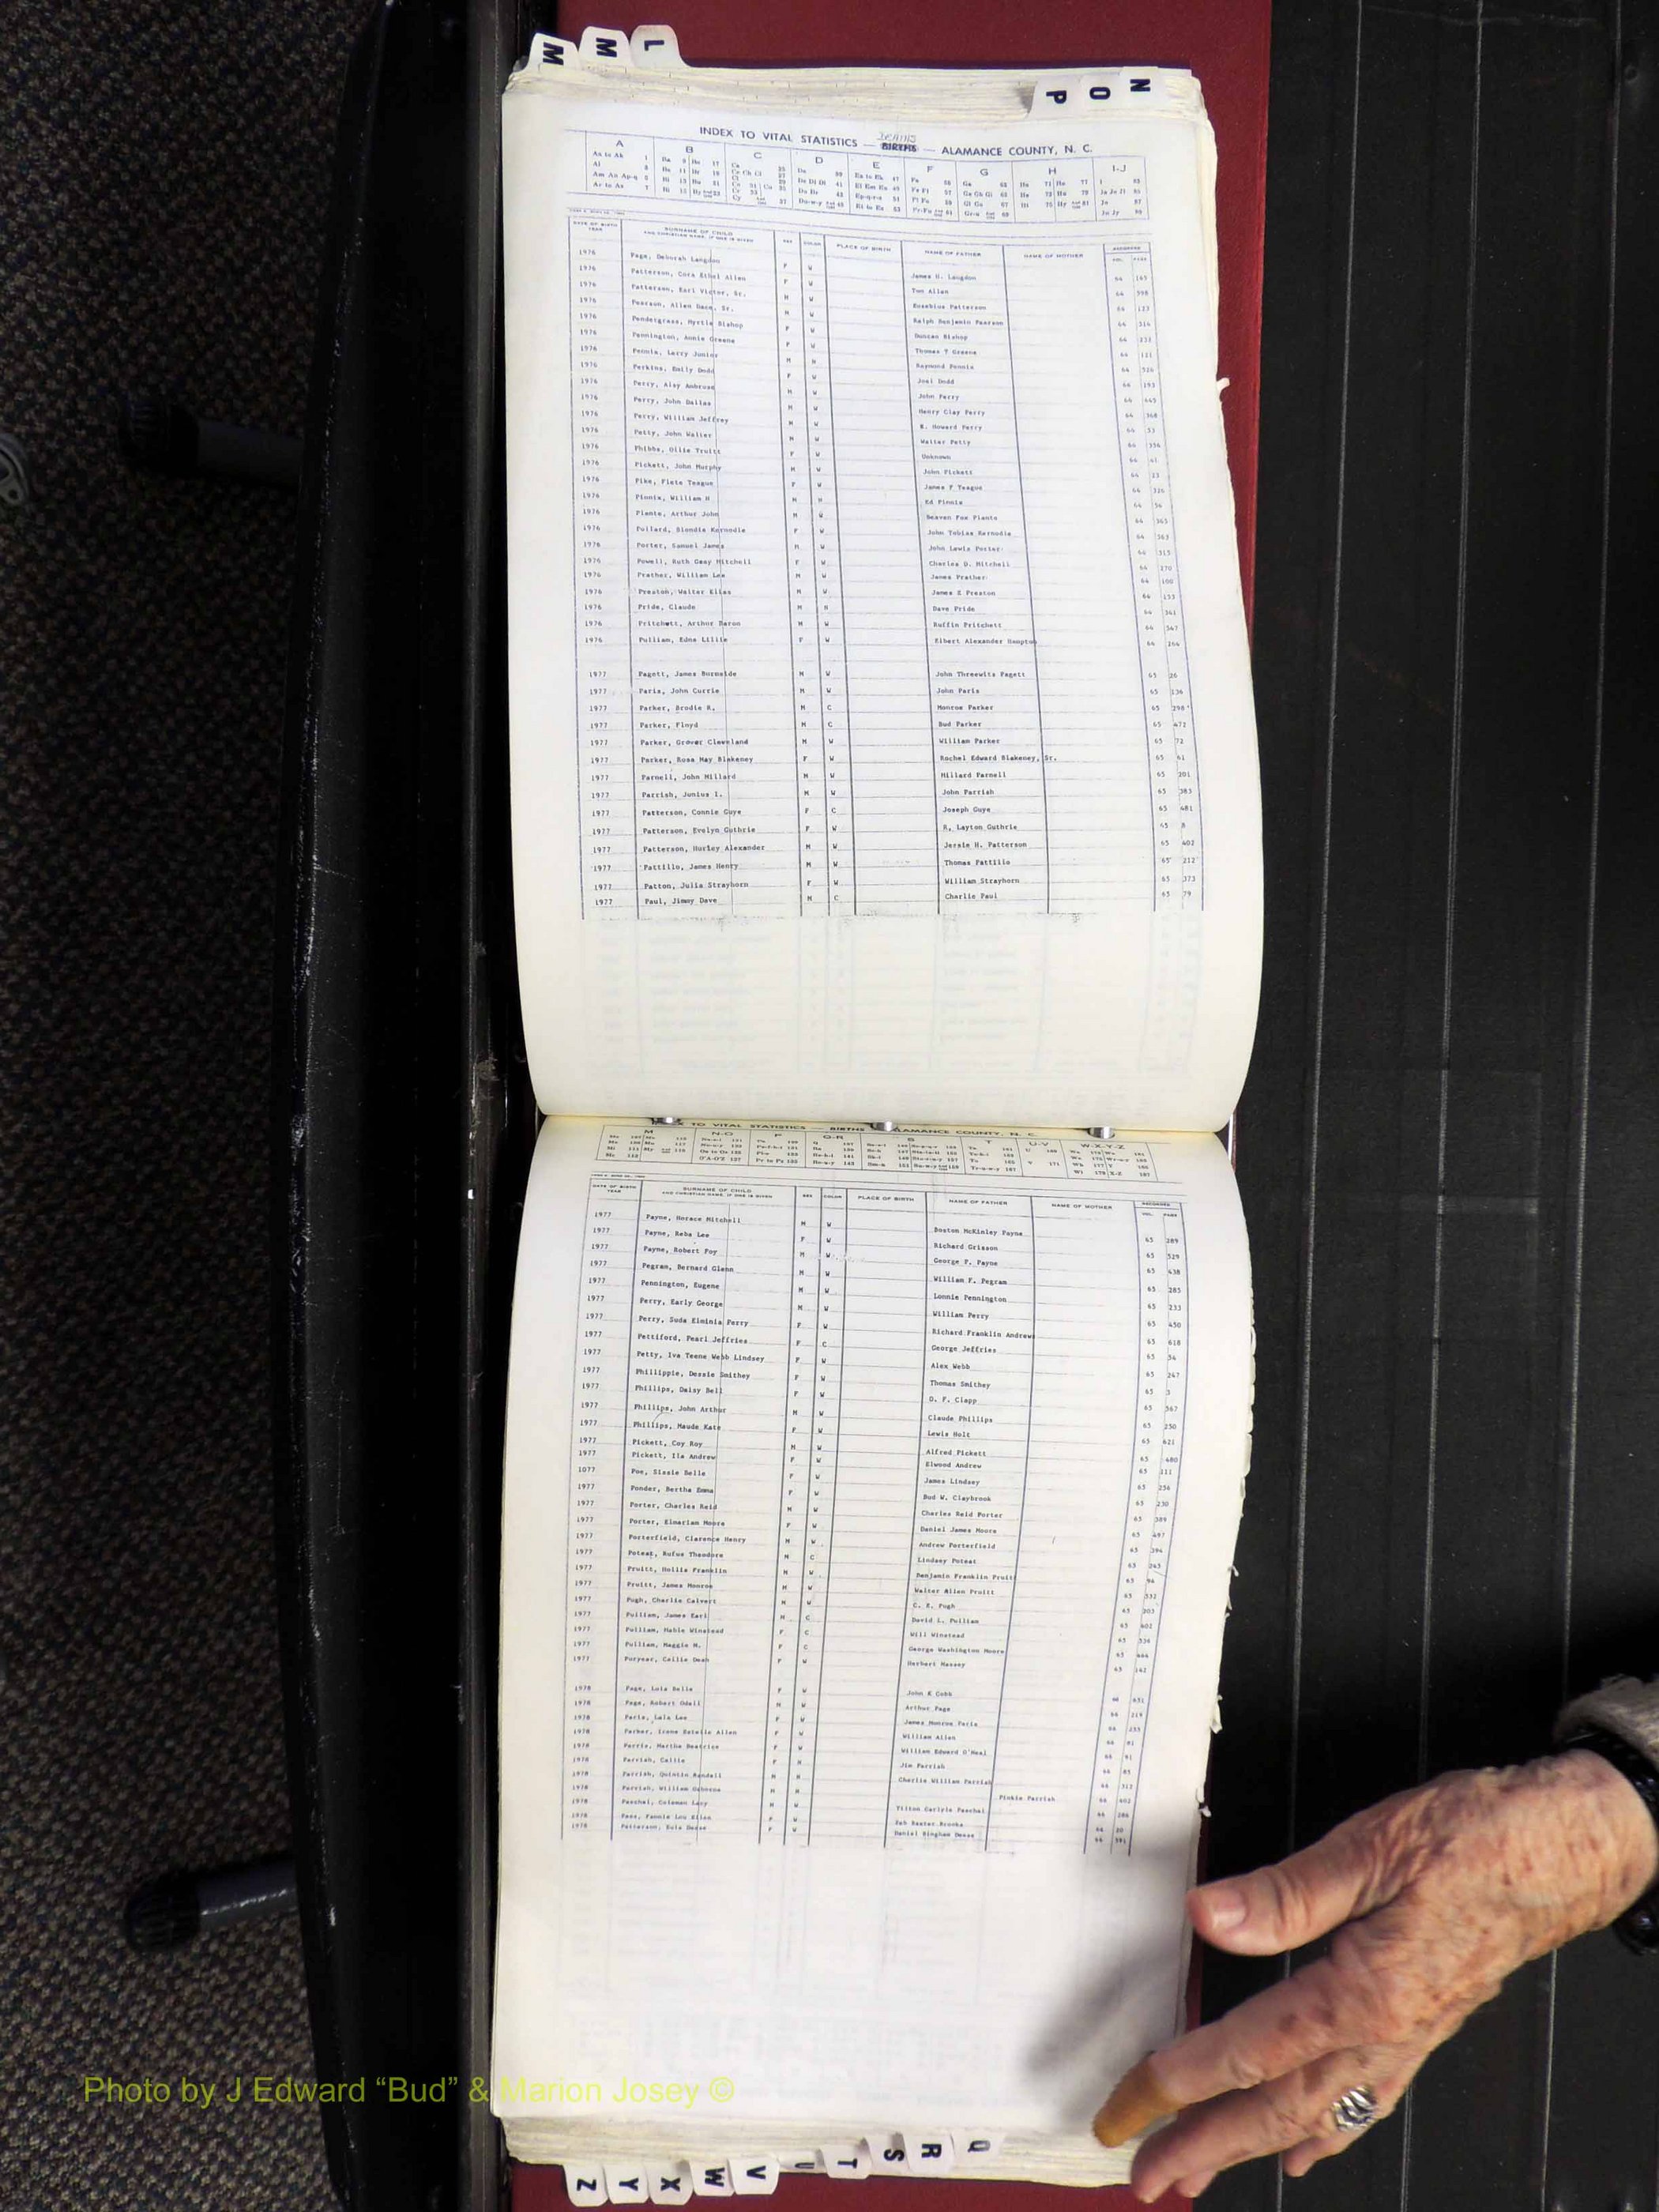 L
M
M
N
O
P
INDEX TO VITAL STATISTICS — BIRTHS — ALAMANCE COUNTY, N. C.
A B C D E F G H I-J
DATE OF BIRTH YEAR SURNAME OF CHILD AND CHRISTIAN NAME, IF ONE IS GIVEN SEX COLOR PLACE OF BIRTH NAME OF FATHER NAME OF MOTHER RECORDED VOL. PAGE
1976 Page, Deborah Langdon F W James H. Langdon 64 165
1976 Patterson, Cora Ethel Allen F W Tom Allen 64 598
1976 Patterson, Earl Victor, Sr. M W Eusebius Patterson 64 123
1976 Pearson, Allen Dace, Sr. M W Ralph Benjamin Pearson 64 316
1976 Pendergrass, Myrtle Bishop F W Duncan Bishop 64
1976 Pennington, Annie Greene F W Thomas T Greene 64 121
1976 Pennix, Larry Junior M N Raymond Pennix 64 526
1976 Perkins, Emily Dodd F W Joel Dodd 64 193
1976 Perry, Alay Ambrose M W John Perry 64 445
1976 Perry, John Dallas M W Henry Clay Perry 64 368
1976 Perry, William Jeffrey M W B. Howard Perry 64 53
1976 Petty, John Walter M W Walter Petty 64 356
1976 Phibbs, Ollie Truitt F W Unknown 64 41
1976 Pickett, John Murphy M W John Pickett 64 23
1976 Pike, Flete Teague F W James F Teague 64 326
1976 Pinnix, William H M N Ed Pinnix 64 56
1976 Plants, Arthur John M W Seaven Fox Plants 64 365
1976 Pollard, Blondie Kernodle F W John Tobias Kernodle 64 363
1976 Porter, Samuel James M W John Lewis Porter 64 315
1976 Powell, Ruth Gray Mitchell F W Charles D. Mitchell 64 270
1976 Prather, William Lee M W James Prather 64 100
1976 Preston, Walter Elias M W James E Preston 64 153
1976 Pride, Claude M N Dave Pride 64 341
1976 Pritchett, Arthur Baron M W Ruffin Pritchett 64 547
1976 Pulliam, Edna Lillie F W Elbert Alexander Hampton 64 264
1977 Pagett, James Burnside M W John Threewits Pagett 65 26
1977 Paris, John Currie M W John Paris 65 136
1977 Parker, Brodie R. M C Monroe Parker 65 298
1977 Parker, Floyd M C Bud Parker 65 472
1977 Parker, Grover Cleveland M W William Parker 65 72
1977 Parker, Rosa May Blakeney F W Rochel Edward Blakeney, Sr. 65 61
1977 Parnell, John Millard M W Millard Parnell 65 201
1977 Parrish, Junius I. M W John Parrish 65 385
1977 Patterson, Connie Guye F C Joseph Guye 65 481
1977 Patterson, Evelyn Guthrie F W R. Layton Guthrie 65 8
1977 Patterson, Hurley Alexander M W Jersie H. Patterson 65 402
1977 Pattillo, James Henry M W Thomas Pattillo 65 212
1977 Patton, Julia Strayhorn F W William Strayhorn 65 373
1977 Paul, Jimmy Dave M C Charlie Paul 65 79
INDEX TO VITAL STATISTICS — BIRTHS — ALAMANCE COUNTY, N. C.
M N-O P Q-R S T U-V W-X-Y-Z
DATE OF BIRTH YEAR SURNAME OF CHILD AND CHRISTIAN NAME, IF ONE IS GIVEN SEX COLOR PLACE OF BIRTH NAME OF FATHER NAME OF MOTHER RECORDED VOL. PAGE
1977 Payne, Horace Mitchell M W Boston McKinley Payne 65 289
1977 Payne, Reba Lee F W Richard Grisson 65 529
1977 Payne, Robert Foy M W George P. Payne 65 438
1977 Pegram, Bernard Glenn M W William F. Pegram 65 285
1977 Pennington, Eugene M W Lonnie Pennington 65 233
1977 Perry, Early George M W William Perry 65 450
1977 Perry, Suda Elminia Perry F W Richard Franklin Andrews 65 618
1977 Pettiford, Pearl Jeffries F C George Jeffries 65 54
1977 Petty, Iva Teene Webb Lindsey F W Alex Webb 65 247
1977 Phillippie, Dessie Smithey F W Thomas Smithey 65 3
1977 Phillips, Daisy Bell F W D. F. Clapp 65 567
1977 Phillips, John Arthur M W Claude Phillips 65 250
1977 Phillips, Maude Kate F W Lewis Holt 65 621
1977 Pickett, Coy Roy M W Alfred Pickett 65 480
1977 Pickett, Ila Andrew F W Elwood Andrew 65 111
1077 Poe, Sissie Belle F W James Lindsey 65 256
1977 Ponder, Bertha Emma F W Bud W. Claybrook 65 230
1977 Porter, Charles Reid M W Charles Reid Porter 65 389
1977 Porter, Elmarian Moore F W Daniel James Moore 65 497
1977 Porterfield, Clarence Henry M W Andrew Porterfield 65 394
1977 Poteat, Rufus Theodore M C Lindsey Poteat 65 245
1977 Pruitt, Hollis Franklin M W Benjamin Franklin Pruitt 65 94
1977 Pruitt, James Monroe M W Walter Allen Pruitt 65 332
1977 Pugh, Charlie Calvert M W C. E. Pugh 65 203
1977 Pulliam, James Earl M C David L. Pulliam 65 402
1977 Pulliam, Mable Winstead F C Will Winstead 65 534
1977 Pulliam, Maggie M. F C George Washington Moore 65 444
1977 Puryear, Callie Dean F W Herbert Massey 65 142
1978 Page, Lula Belle F W John E Cobb 66 451
1978 Page, Robert Odell M W Arthur Page 66 219
1978 Paris, Lala Lee F W James Monroe Paris 66 255
1978 Parker, Irene Estelle Allen F W William Allen 66 81
1978 Parris, Martha Beatrice F W William Edward O'Neal 66 91
1978 Parrish, Callie F N Jim Parrish 66 85
1978 Parrish, Quintin Randell M N Charlie William Parrish 66 312
1978 Parrish, William Osborne M N Pinkie Parrish 66 402
1978 Paschal, Coleman Lacy M W Tilton Carlyle Paschal 66 286
1978 Pass, Fannie Lou Ellen F W Zeb Baxter Brooks 66 20
1978 Patterson, Eula Deese F W Daniel Bingham Deese 66 591
Photo by J Edward “Bud” & Marion Josey ©
Q
R
S
T
U
V
W
X
Y
Z